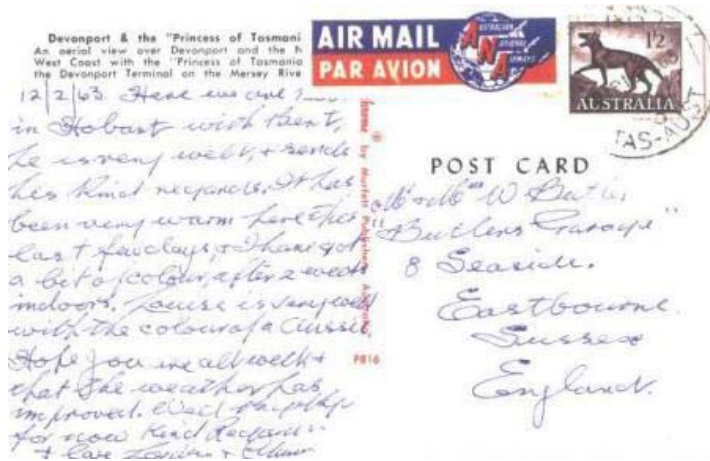 Devonport & the "Princess of Tasmani
An aerial view over Devonport and the N
West Coast with the "Princess of Tasmania
the Devonport Terminal on the Mersey Rive
AIR MAIL
PAR AVION
AUSTRALIAN
NATIONAL
AIRWAYS
ANA
1/2
AUSTRALIA
TAS-AUST
12/2/63. Here we are
in Hobart with Bert,
he is very well, & sends
his kind regards. It has
been very warm here this
last few days, & I have got
a bit of colour, after a week
indoors. Louise is very well
with the colour of a Aussie.
Hope you are all well &
that the weather has
improved. Well
for now Kind Regards
& love
by Murfett Publishers Australia
PB16
POST CARD
Mr & Mrs W Butler
"Butlers Garage"
8 Seaside.
Eastbourne.
Sussex
England.